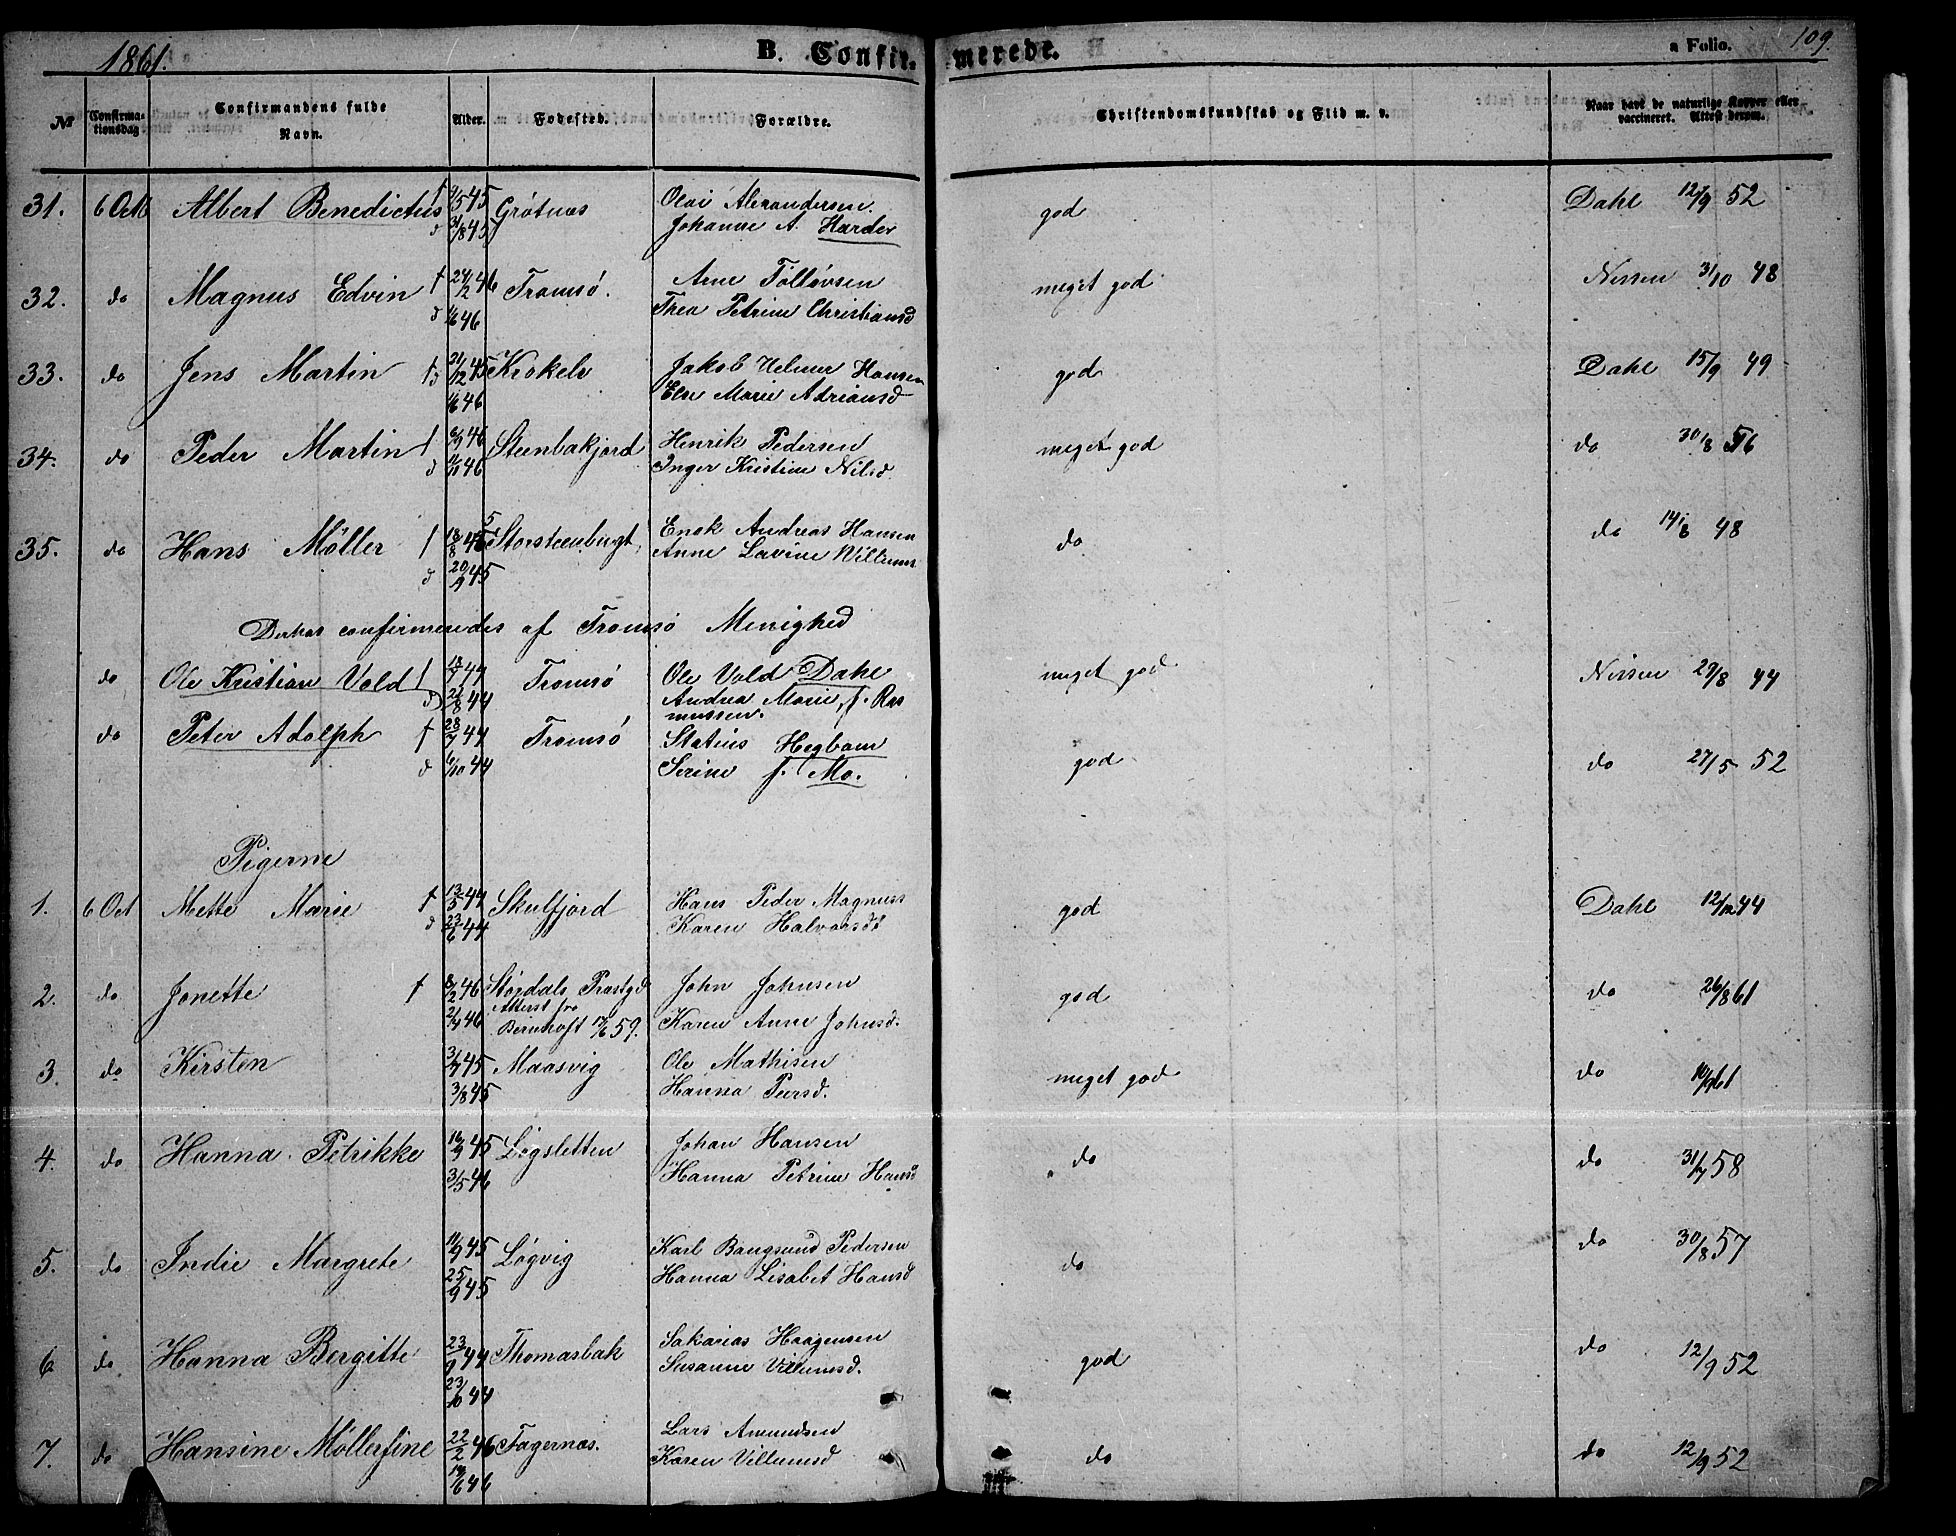 1861.
B. Confir-
merede.
a Folio. 109.
No
Confirma-
tionsdag
Confirmandens fulde
Navn.
Alder.
Fødested.
Forældre.
Christendomskundskab og Flid m. v.
Naar havt de naturlige Kopper eller
vaccineret. Attest derom.
31. 6 Octb Albert Benedictus f 4/5 45 Grøtnæs Olai Alexandersen. god Dahl 12/9 52
d 31/8 45 Johanne A. Harder
32. do Magnus Edvin f 24/2 46 Tromsø. Arne Tollevsen meget god Nissen 31/10 48
d 46 Thea Petrine Christiansd
33. do Jens Martin f 21/12 45 Krokelv Jakob Helmer Hansen god Dahl 15/9 49
d 46 Else Marie Adriansd
34. do Peder Martin f 6/9 46 Steenbakjord Henrik Pedersen meget god do 30/8 56
d 46 Inger Kristine Nilsd.
35. do Hans Møller f 18/8 45 Storsteenbugt Enok Andreas Hansen do do 14/8 48
d 20/9 45 Anne Lavine Willums
Derhos confirmeredes af Tromsø Menighed
do Ole Kristian Vold f 44 Tromsø Ole Vold Dahl meget god Nissen 29/8 44
d 44 Andrea Marie f. Ras
mussen.
do Peter Adolph f 28/7 44 Tromsø Statius Hegbom god do 27/5 52
d 6/10 44 Serine f. Mo.
Pigerne
1. 6 Oct Mette Marie f 13/5 44 Skulfjord Hans Peder Magnuss god Dahl 12/12 44
d 23/6 44 Karen Halvorsdt
2. do Jonette f 8/2 46 Størdals Præstgd John Johnsen god do 26/8 61
2/4 46 Attest fra
Bernhoft 59. Karen Anne Johnsd.
3. do Kirsten 3/7 45 Maasvig Ole Mathisen meget god do 10/9 61
3/8 45 Hanna Peersd.
4. do Hanna Petrikke 16/9 45 Løgsletten Johan Hansen do do 31/7 58
3/5 46 Hanna Petrine Hansd
5. do Indie Margrete 11/9 45 Løgvig Karl Bangsund Pedersen do do 30/8 57
25/9 45 Hanna Lisabet Hansd
6 do Hanna Bergitte 23/9 44 Thomasbak Sakarias Haagensen god do 12/9 52
23/10 44 Susanne Villumsd.
7. do Hansine Møllerfine 22/2 46 Fagernæs. Lars Amundsen do do 12/9 52
14/6 46 Karen Villumsd